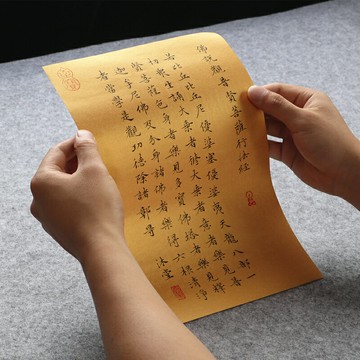 佛說觀普賢菩薩行法經
若比丘比丘尼優婆塞優婆夷天龍八部一
切衆生誦大乘者修大乘者樂見普
賢菩薩色身者樂見多寶佛塔者樂見釋
迦牟尼佛及分身諸佛者樂得六根清淨
者當學是觀功德除諸
沐堂